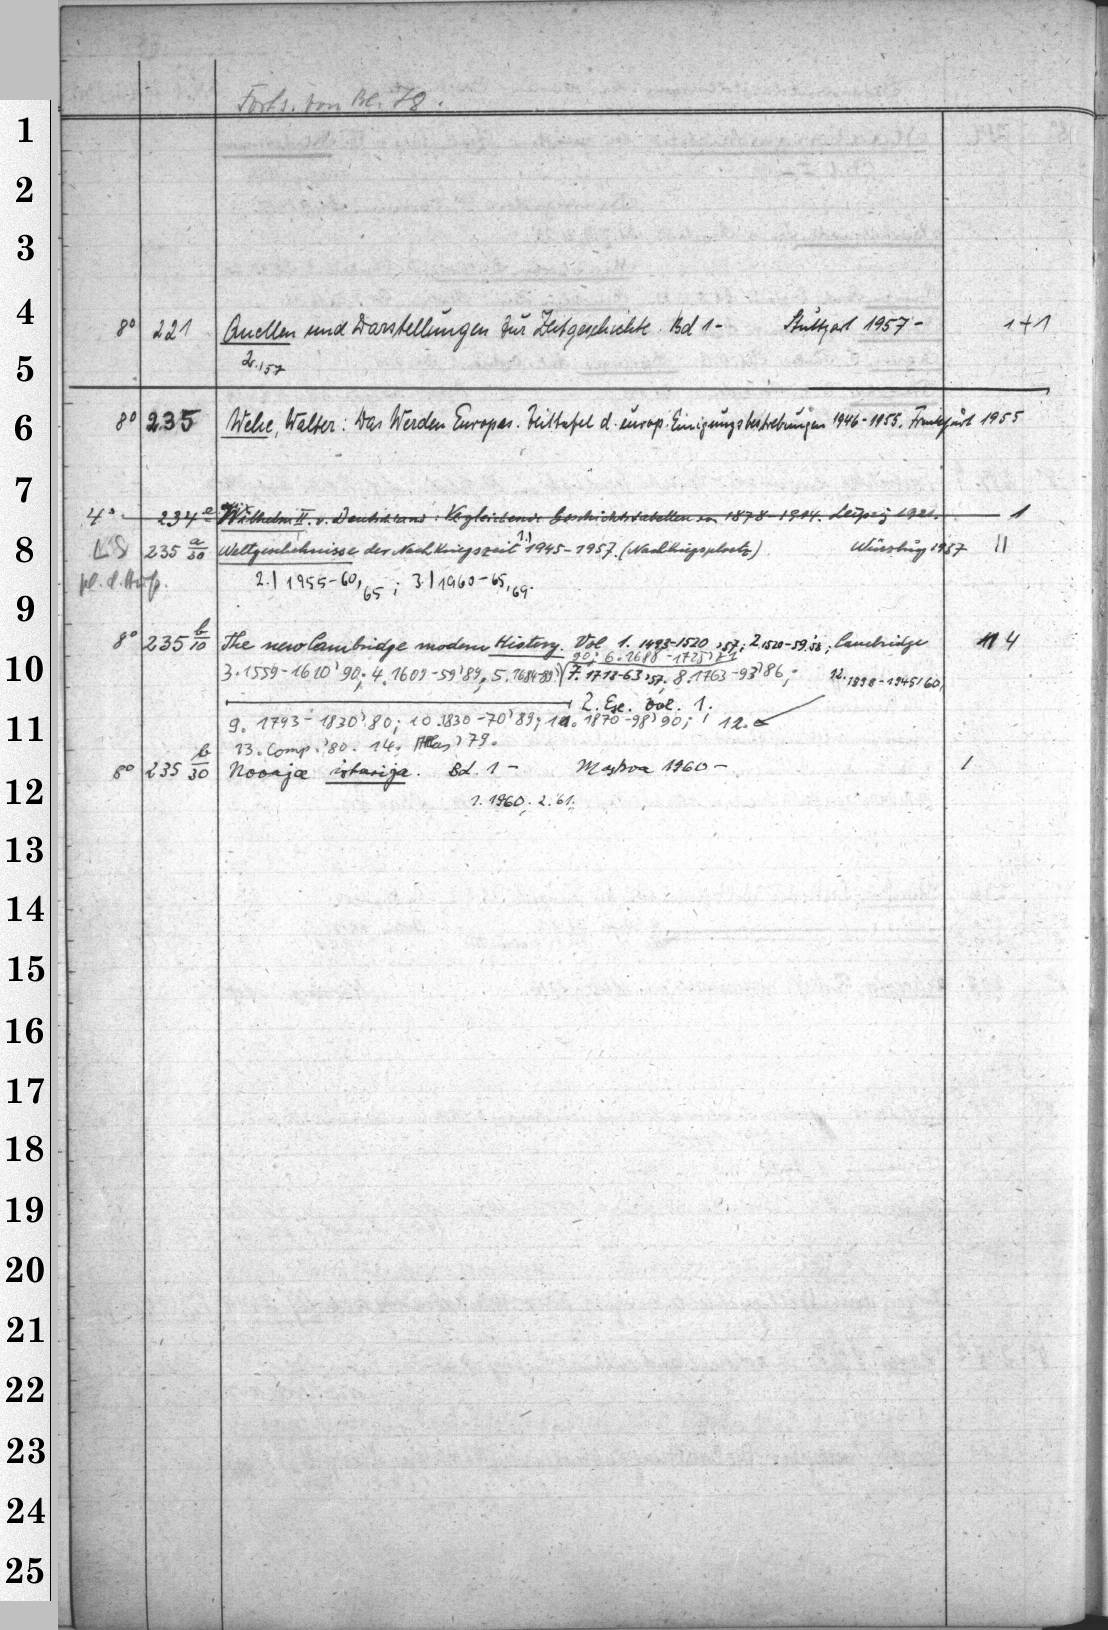 Forts. von Bl. 78.
1
2
3
4
8° 221 Quellen und Darstellungen zur Zeitgeschichte. Bd 1- Stuttgart 1957- 1+1
5
2.'57
6
8° 235 Wehe, Walter: Das Werden Europas. Zeittafel d. europ. Einigungsbestrebungen 1946-1955. Frankfurt 1955
7
4° 234 a Wilhelm II. v. Deutschland: Vergleichende Geschichtstabellen von 1878-1914. Leipzig 1921. 1
8
LS 235 a/50 Weltgeschehnisse der Nachkriegszeit 1.) 1945-1957. (Nachkriegsploetz) Würzburg 1957 II
2.) 1955-60, 65; 3.) 1960-65, 69.
9
8° 235 b/10 The new Cambridge modern History. Vol. 1. 1493-1520, '57; 2. 1520-59, '58; Cambridge 4
90; 6. 1688-1725 '71
10
3. 1559-1610 '90; 4. 1609-59 '89, 5. 1648-88 7. 1713-63 '57, 8. 1763-93 '86; 12. 1898-1945 '60,
2. Ex. Vol. 1.
11
9. 1793-1830 '80; 10. 1830-70 '89; 11. 1870-98 '90; 12.
13. Comp. '80. 14. Atlas '79.
8° 235 b/30 Novaja istorija. Bd. 1- Moskva 1960- 1
12
1. 1960. 2. '61.
13
14
15
16
17
18
19
20
21
22
23
24
25